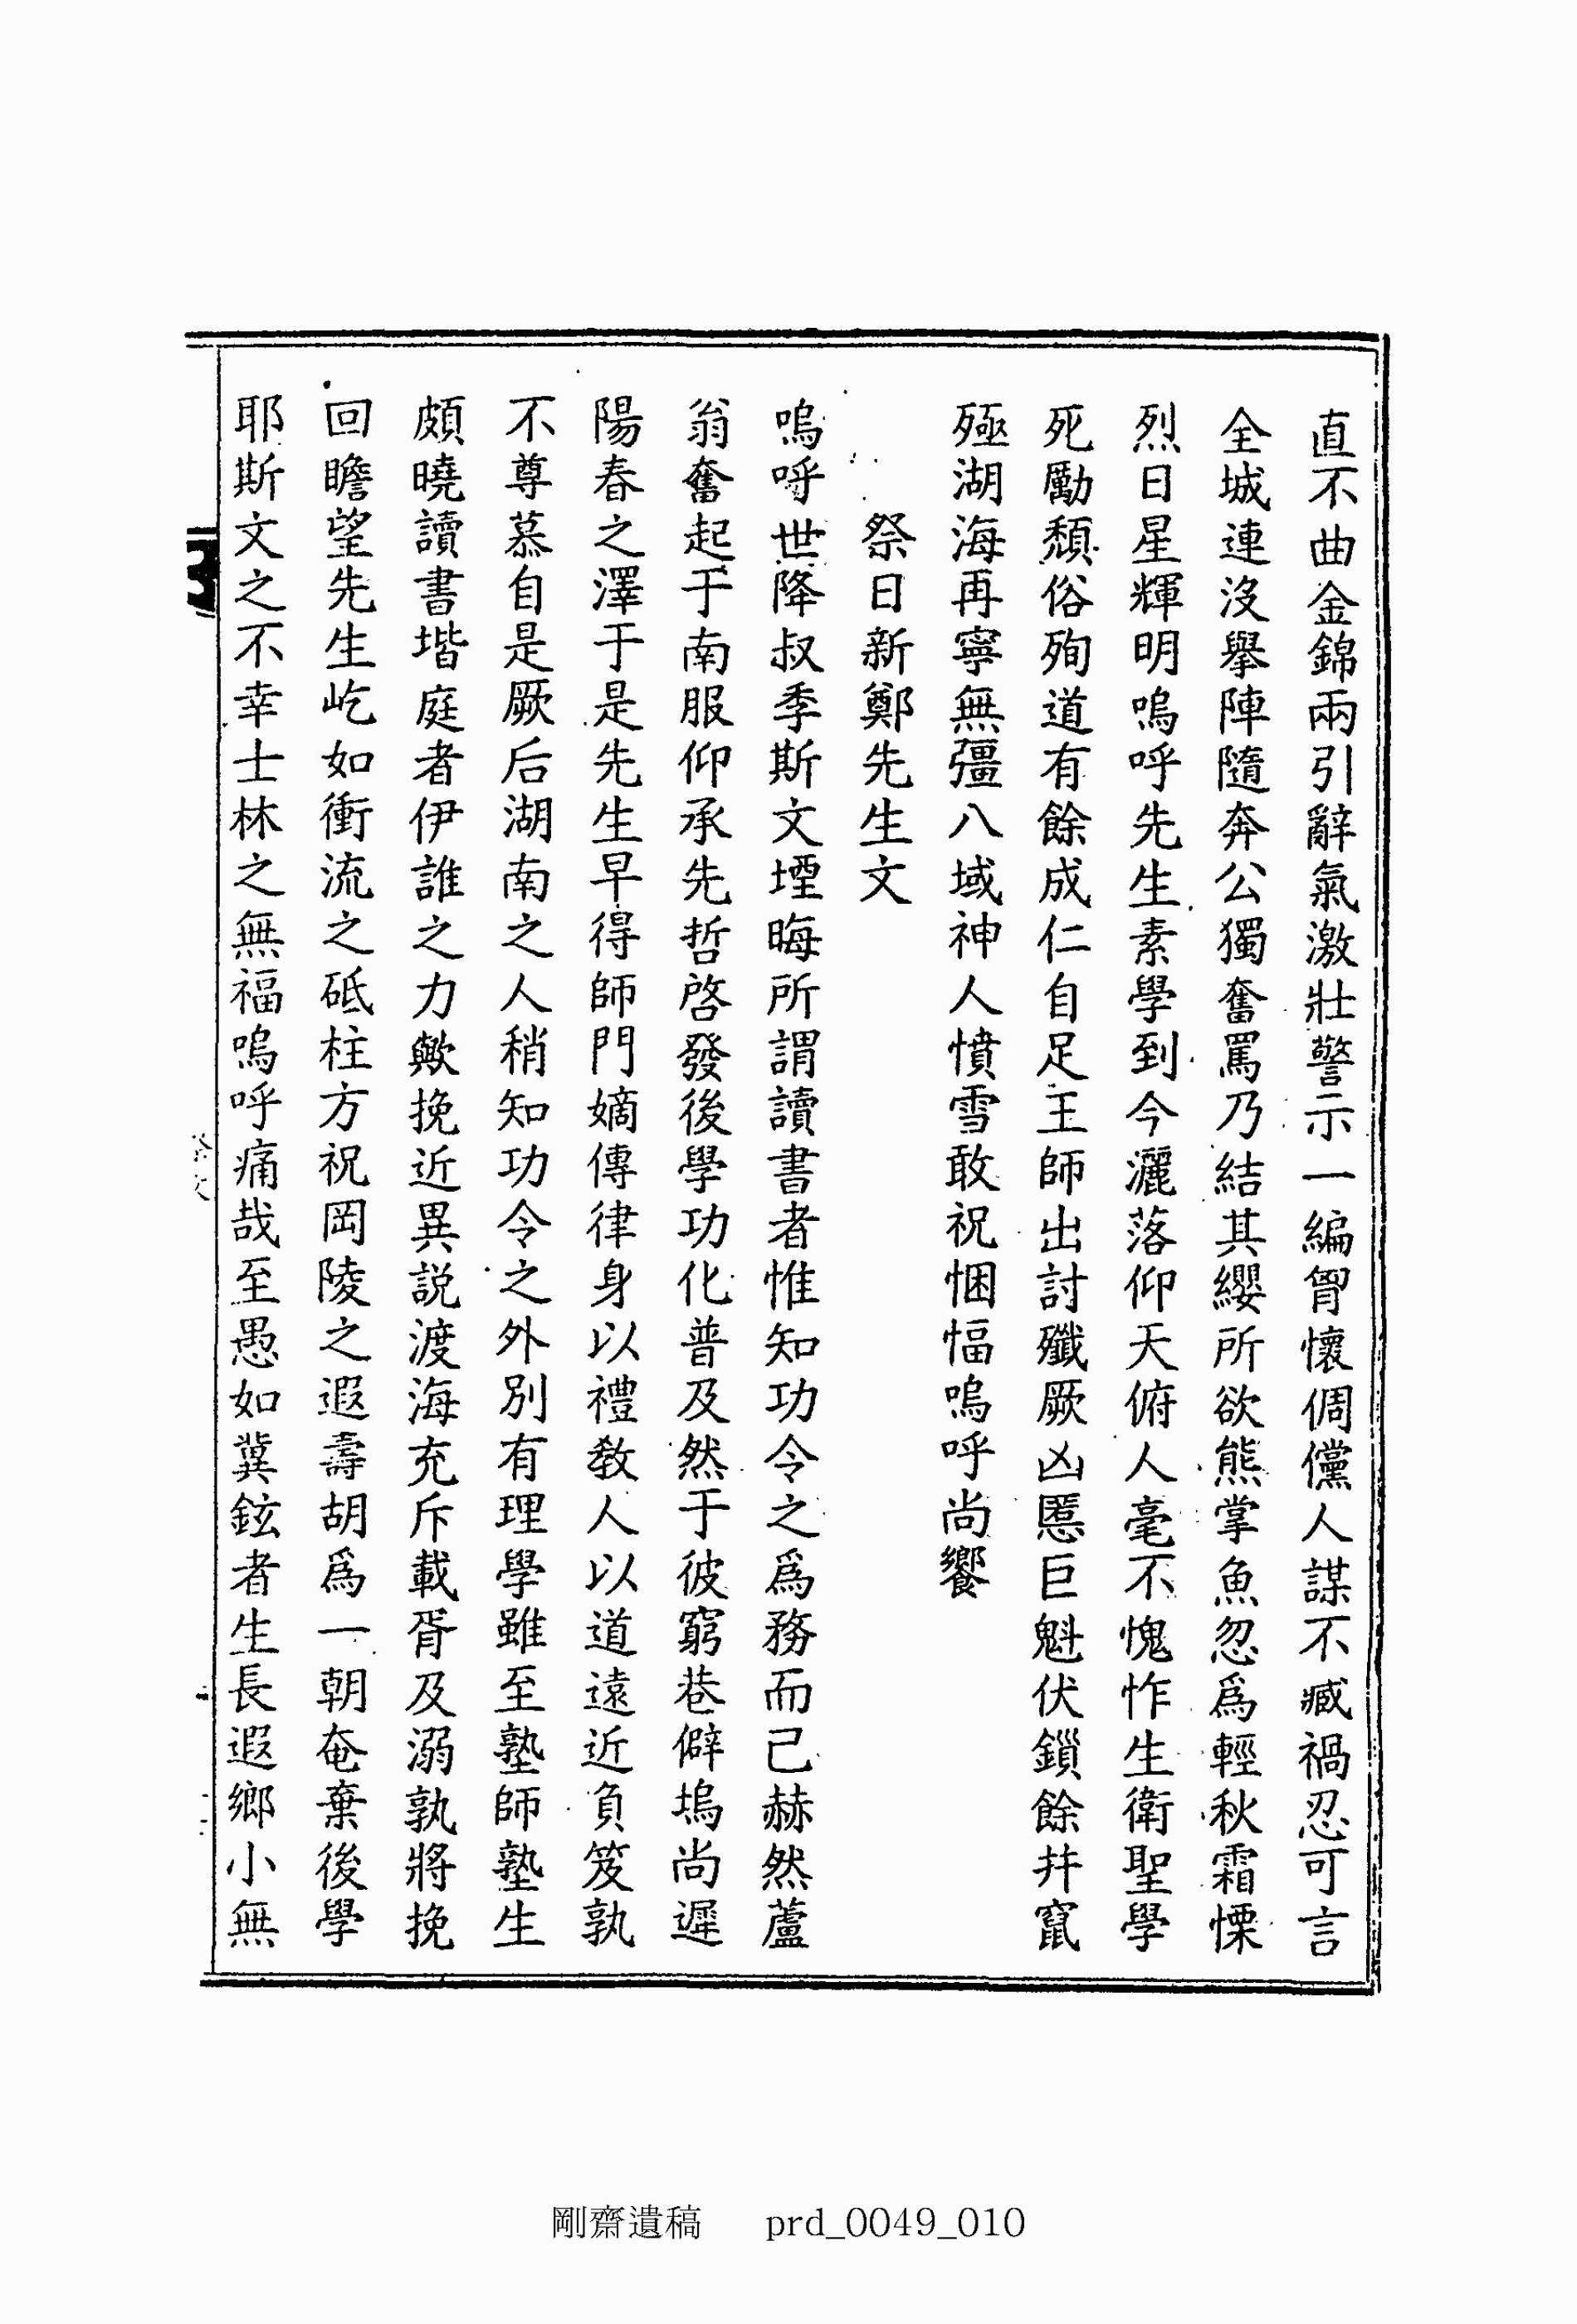 直不曲金錦兩引辭氣激壯警示一編胷懷倜儻人謀不臧禍忍可言
全城連沒擧陣隨奔公獨奮罵乃結其纓所欲熊掌魚忽爲輕秋霜慄
烈日星輝明嗚呼先生素學到今灑落仰天俯人毫不愧怍生衛聖學
死勵頹俗殉道有餘成仁自足王師出討殲厥凶慝巨魁伏鎖餘幷竄
殛湖海再寧無彊八域神人憤雪敢祝悃愊嗚呼尚饗
祭日新鄭先生文
嗚呼世降叔季斯文堙晦所謂讀書者惟知功令之爲務而己赫然蘆
翁奮起于南服仰承先哲啓發後學功化普及然于彼窮巷僻塢尚遲
陽春之澤于是先生早得師門嫡傳律身以禮敎人以道遠近負笈孰
不尊慕自是厥后湖南之人稍知功令之外別有理學雖至塾師塾生
頗曉讀書堦庭者伊誰之力歟挽近異說渡海充斥載胥及溺孰將挽
回瞻望先生屹如衝流之砥柱方祝岡陵之遐壽胡爲一朝奄棄後學
耶斯文之不幸士林之無福嗚呼痛哉至愚如冀鉉者生長遐鄉小無
剛齋遺稿 prd_0049_010